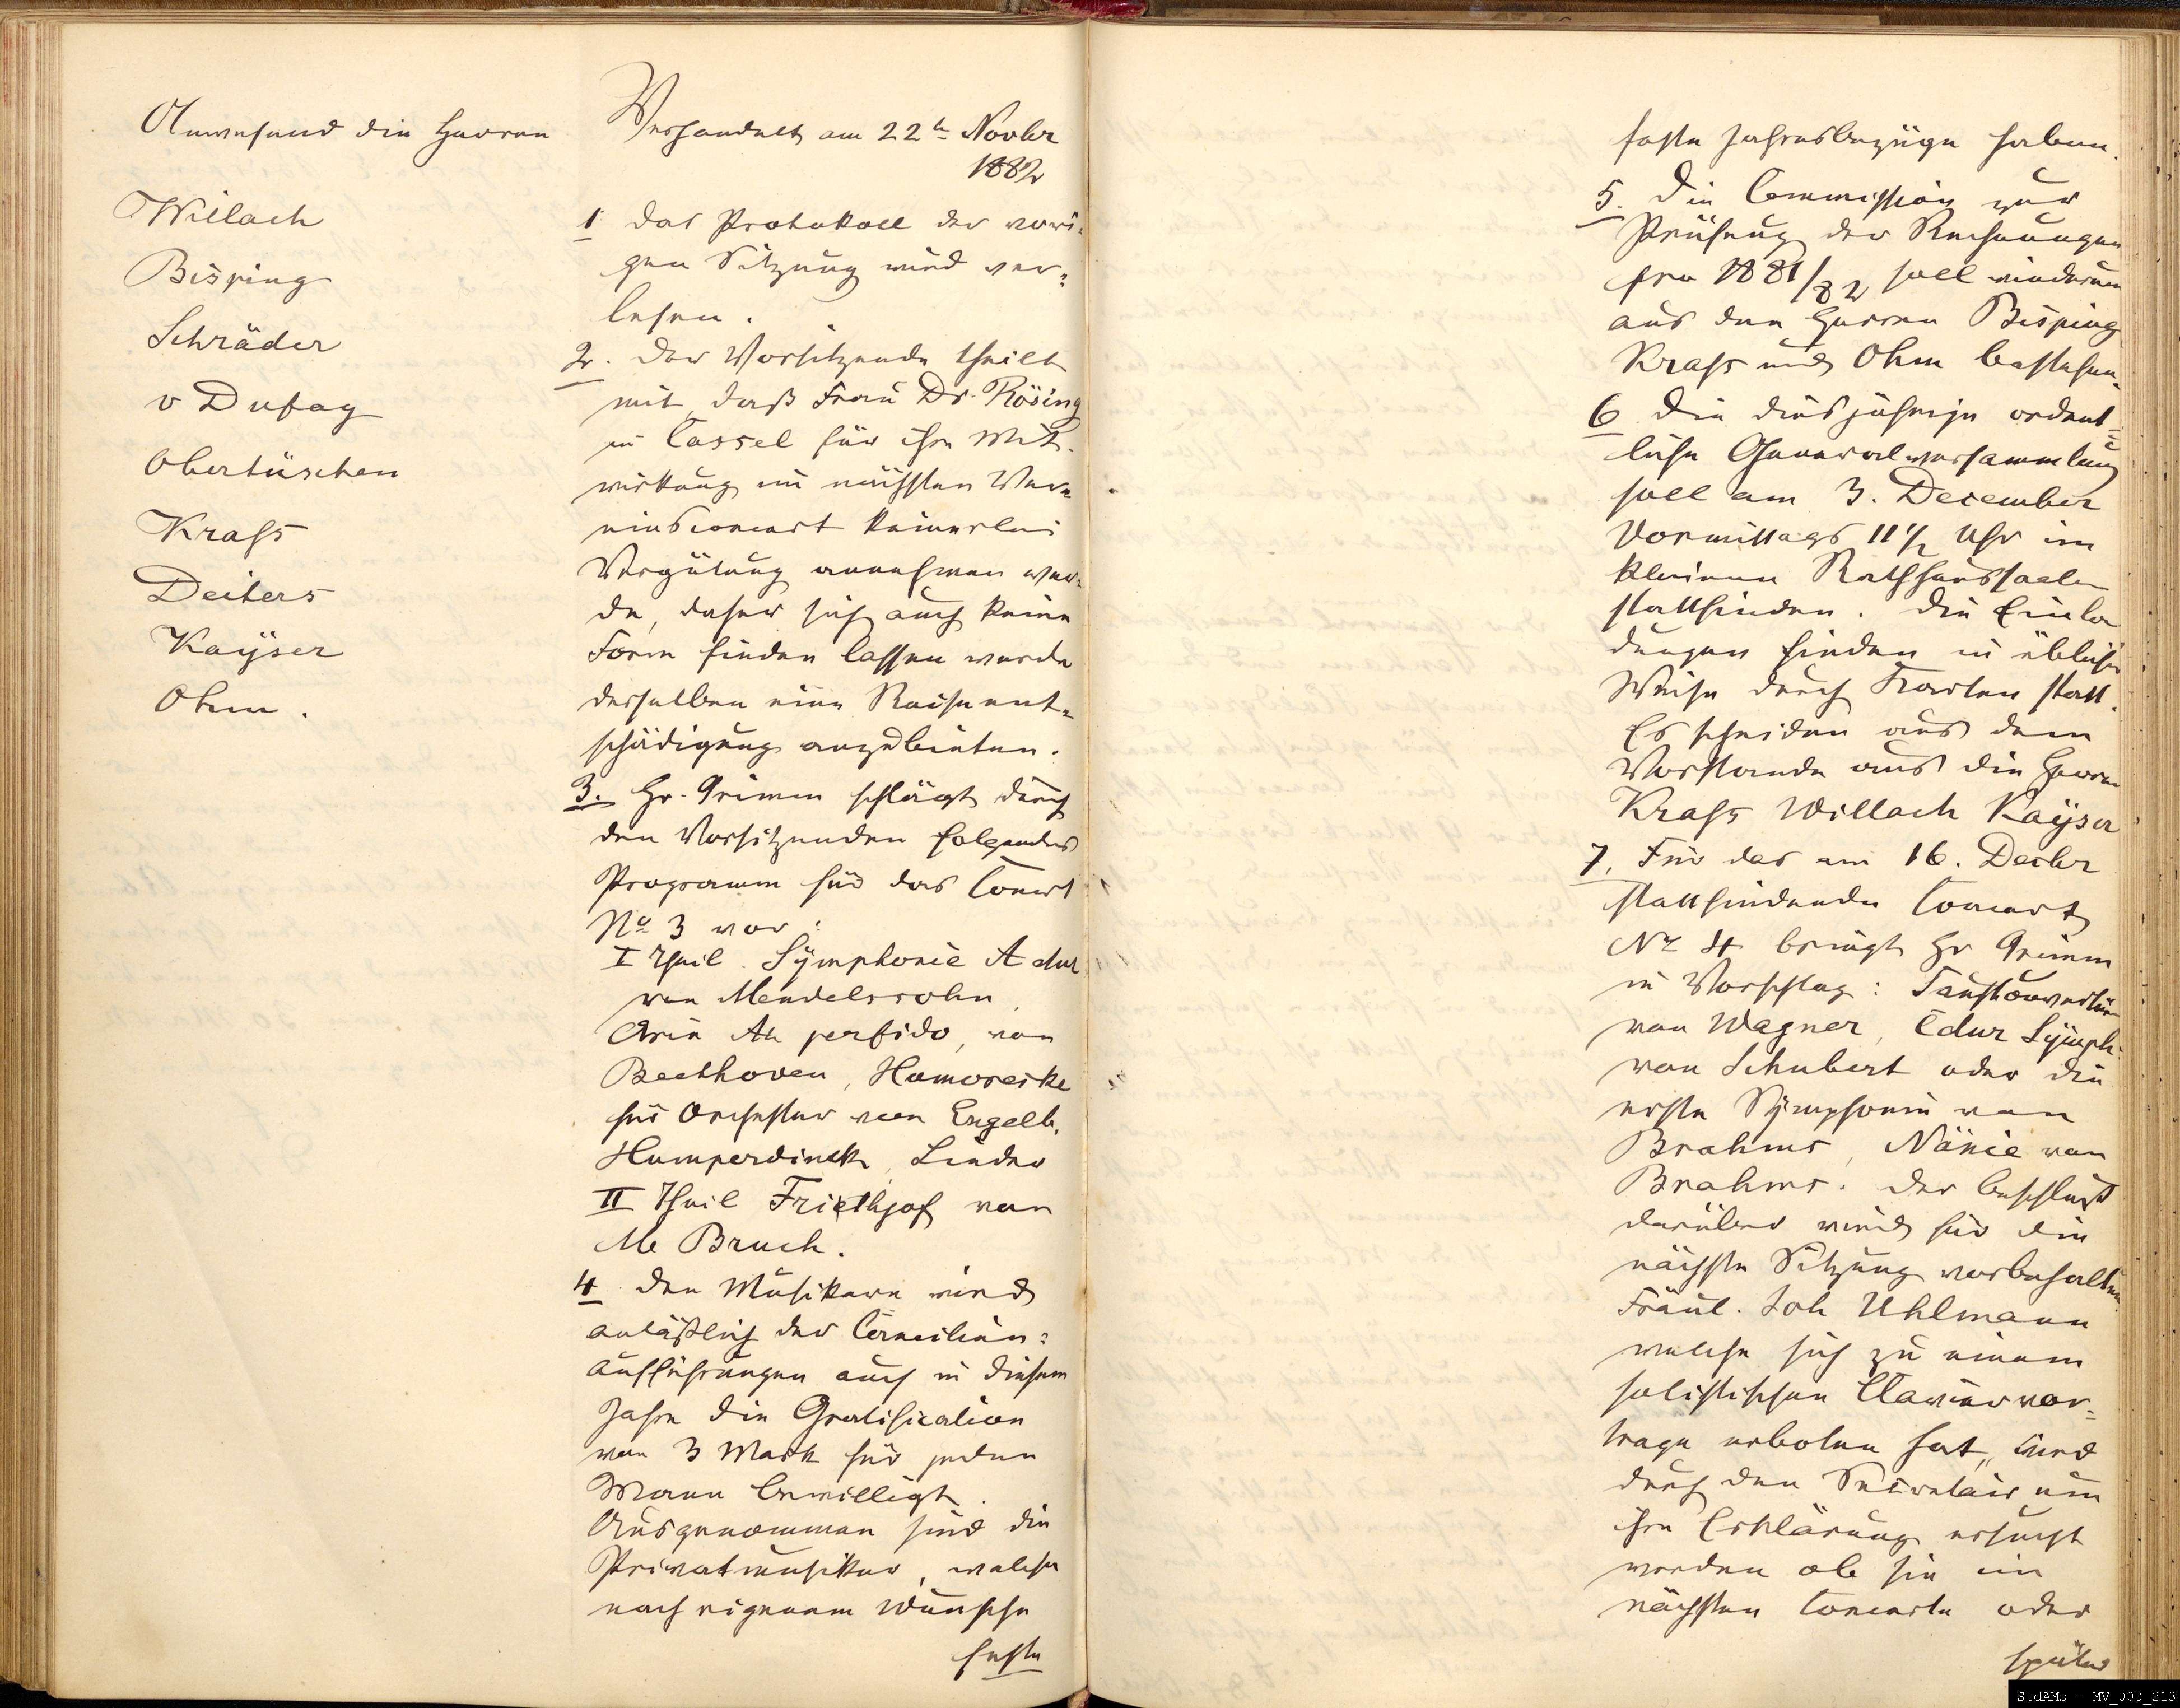 Anwesend die Herren
Willach
Bisping
Schräder
v Dufay
Obertüschen
Krass
Deiters
Kayser
Ohm.
Verhandelt am 22t Novbr
1882
1 Das Protokoll der vori-
gen Sitzung wird ver-
lesen.
2. Der Vorsitzende theilt
mit, daß Frau Dr. Rösing
in Cassel für ihre Mit-
wirkung im nächsten Ver-
einsconcert keinerlei
Vergütung annehmen wer-
de, daher sich auch keine
Form finden lassen werde
derselben eine Reiseent-
schädigung anzubieten.
3. Hr. Grimm schlägt durch
den Vorsitzenden folgendes
Programm für das Concert
No 3 vor:
I Theil. Symphonie A dur
von Mendelssohn,
Arie Ah perfido, von
Beethoven, Humoreske
für Orchester von Engelb.
Humperdinck, Lieder
II Theil Friethjof von
M Bruch.
4 Den Musikern wird
anläßlich der Cäcilien-
aufführungen auch in diesem
Jahre die Gratification
von 3 Mark für jeden
Mann bewilligt.
Ausgenommen sind die
Privatmusiker, welche
nach eigenem Wunsche
feste
feste Jahresbezüge haben.
5. Die Commission zur
Prüfung der Rechnungen
pro 1881/82 soll wiederum
aus den Herren Bisping
Krass und Ohm bestehen.
6 Die diesjährige ordent-
liche Generalversammlung
soll am 3. December
Vormittags 11 1/2 Uhr im
kleinen Rathhaussaale
stattfinden. Die Einla
dungen finden in üblicher
Weise durch Karten statt.
Es scheiden aus dem
Vorstande aus die Herren
Krass Willach Kayser
7. Für das am 16. Decbr
stattfindende Concert
No 4 bringt Hr Grimm
in Vorschlag: Faustouvertüre
von Wagner, Cdur Symph.
von Schubert oder die
erste Symphonie von
Brahms, Nänie von
Brahms. Der Beschluß
darüber wird für die
nächste Sitzung vorbehalten.
Fräul. Joh Uhlmann
welche sich zu einem
solistischen Claviervor-
trage erboten hat, wird
durch den Secretair um
ihre Erklärung ersucht
werden ob sie im
nächsten Concerte oder
später
StdAMs - MV_003_213